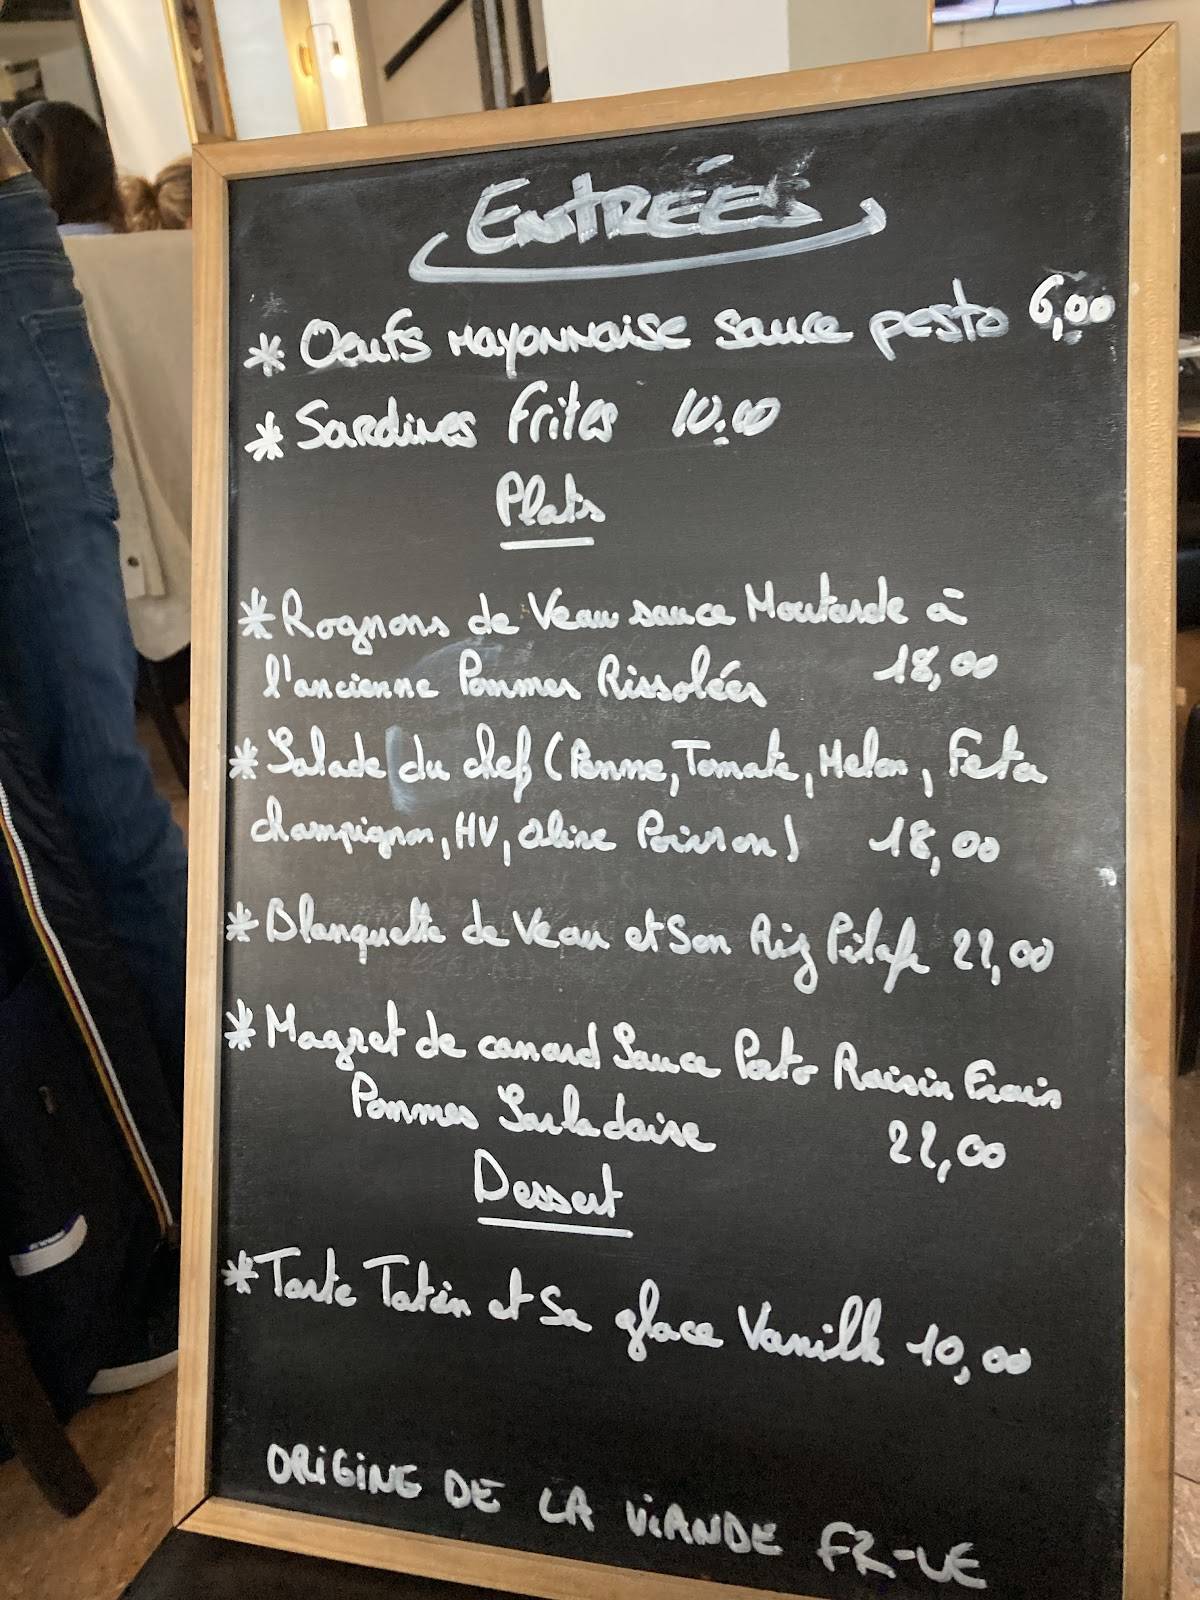 ENTRÉES
* Oeufs Mayonnaise sauce pesto 6,00
* Sardines Frites 10.00
Plats
* Rognons de Veau sauce Moutarde à
l'ancienne Pommes Rissolées 18,00
* Salade du chef (Penne, Tomate, Melon, Feta
champignon, HV, Olive Poisson) 18,00
* Blanquette de Veau et Son Riz Pilaf 22,00
* Magret de canard Sauce Porto Raisin Frais
Pommes Sarladaise 22,00
Dessert
* Tarte Tatin et Sa glace Vanille 10,00
ORIGINE DE LA VIANDE FR-UE